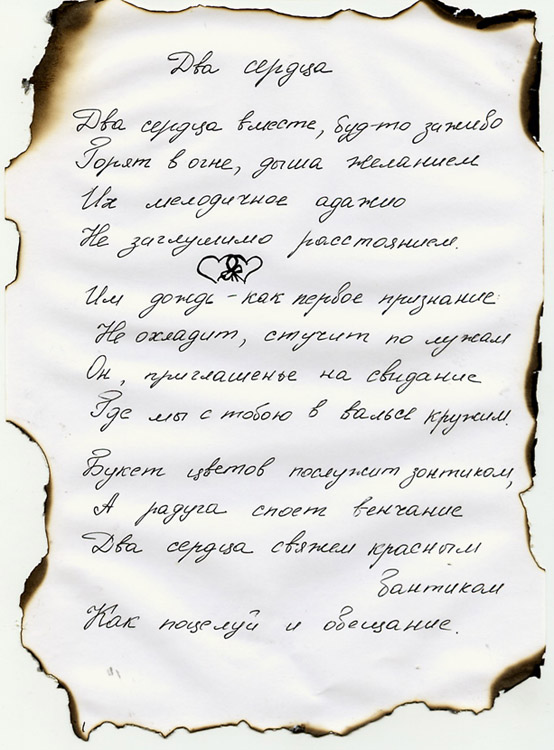 Два сердца
Два сердца вместе, буд-то заживо
Горят в огне, дыша желанием
Их мелодичное адажио
Не заглушимо расстоянием.
Им дождь - как первое признание
Не охладит, стучит по лужам
Он, приглашенье на свидание
Где мы с тобою в вальсе кружим.
Букет цветов послужит зонтиком,
А радуга споет венчание
Два сердца свяжем красным
бантиком
Как поцелуй и обещание.